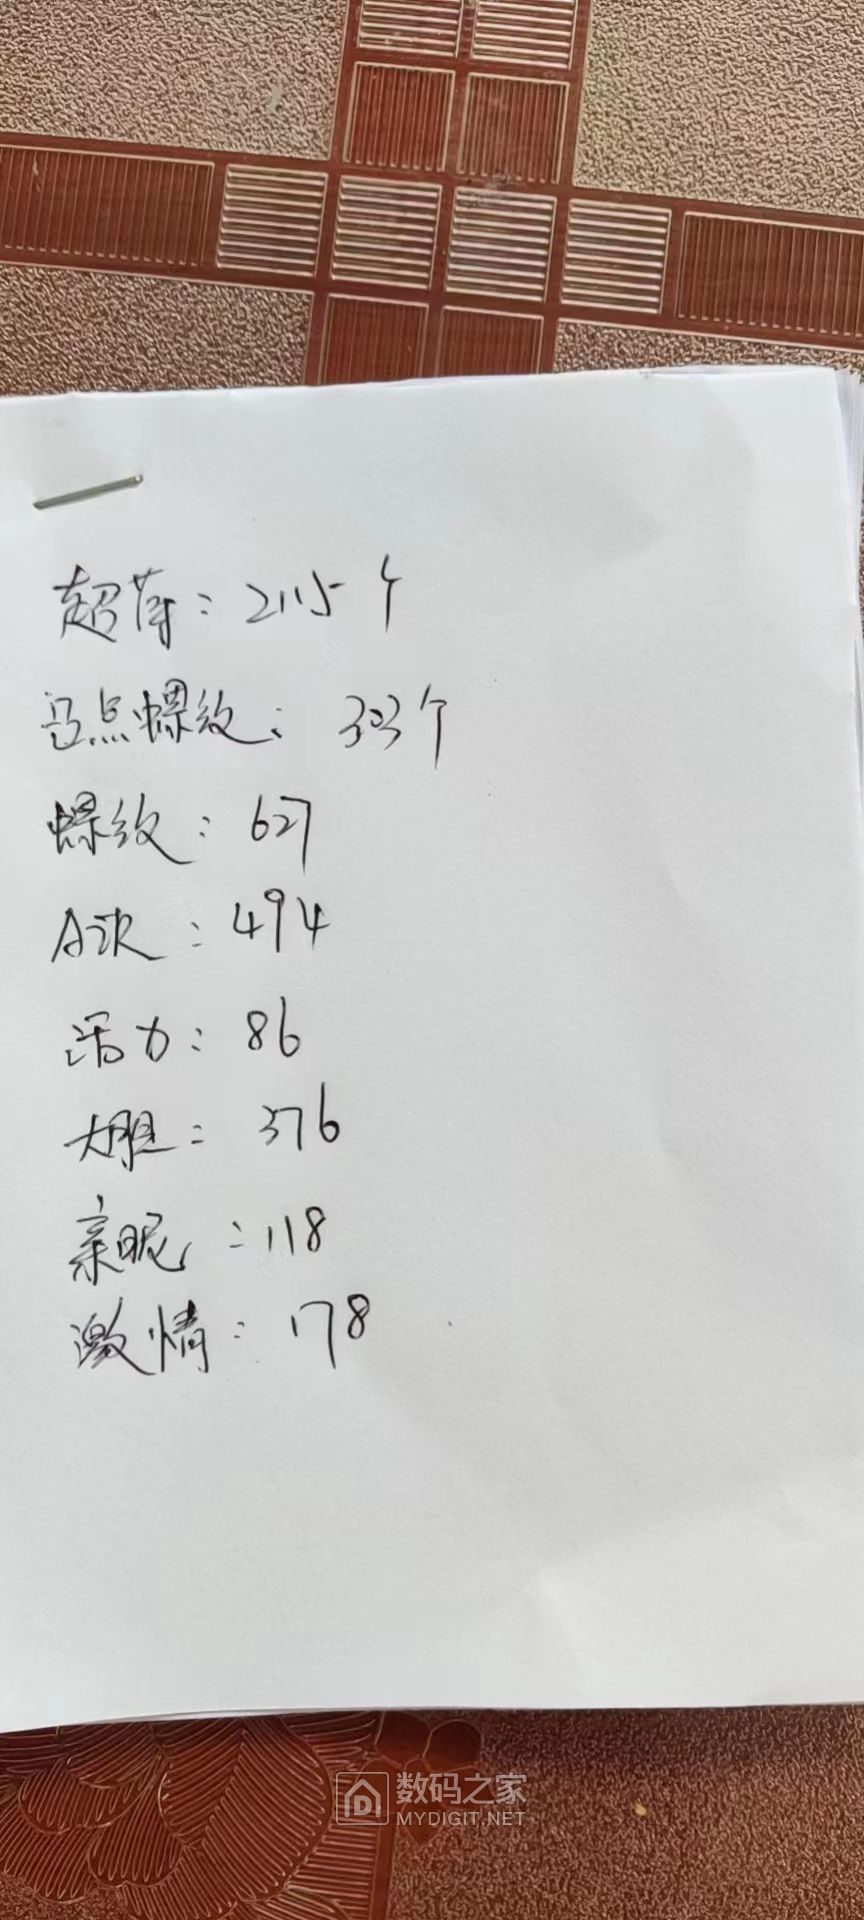 超薄：2115个
凸点螺纹：303个
螺纹：627
A次：494
活力：86
大胆：376
亲昵：118
激情：178
数码之家
MYDIGIT.NET